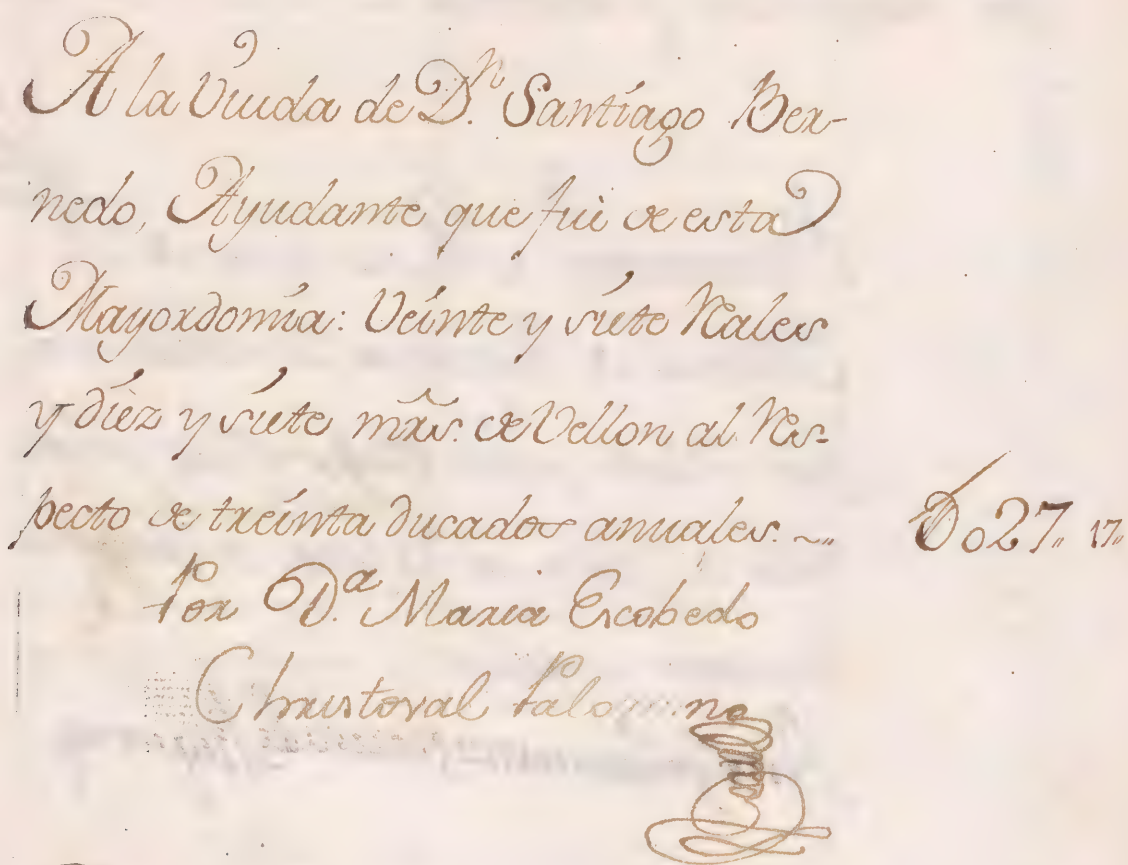 A la Viuda de D.n Santiago Ber-
nedo, Ayudante que fuè de esta
Mayordomía: Veinte y siete Reales
y diez y siete mrs. de Vellon al Res-
pecto de treinta ducados anuales. ~ Do27,, 17,,
Por D.a Maria Escobedo
Christoval Palomino